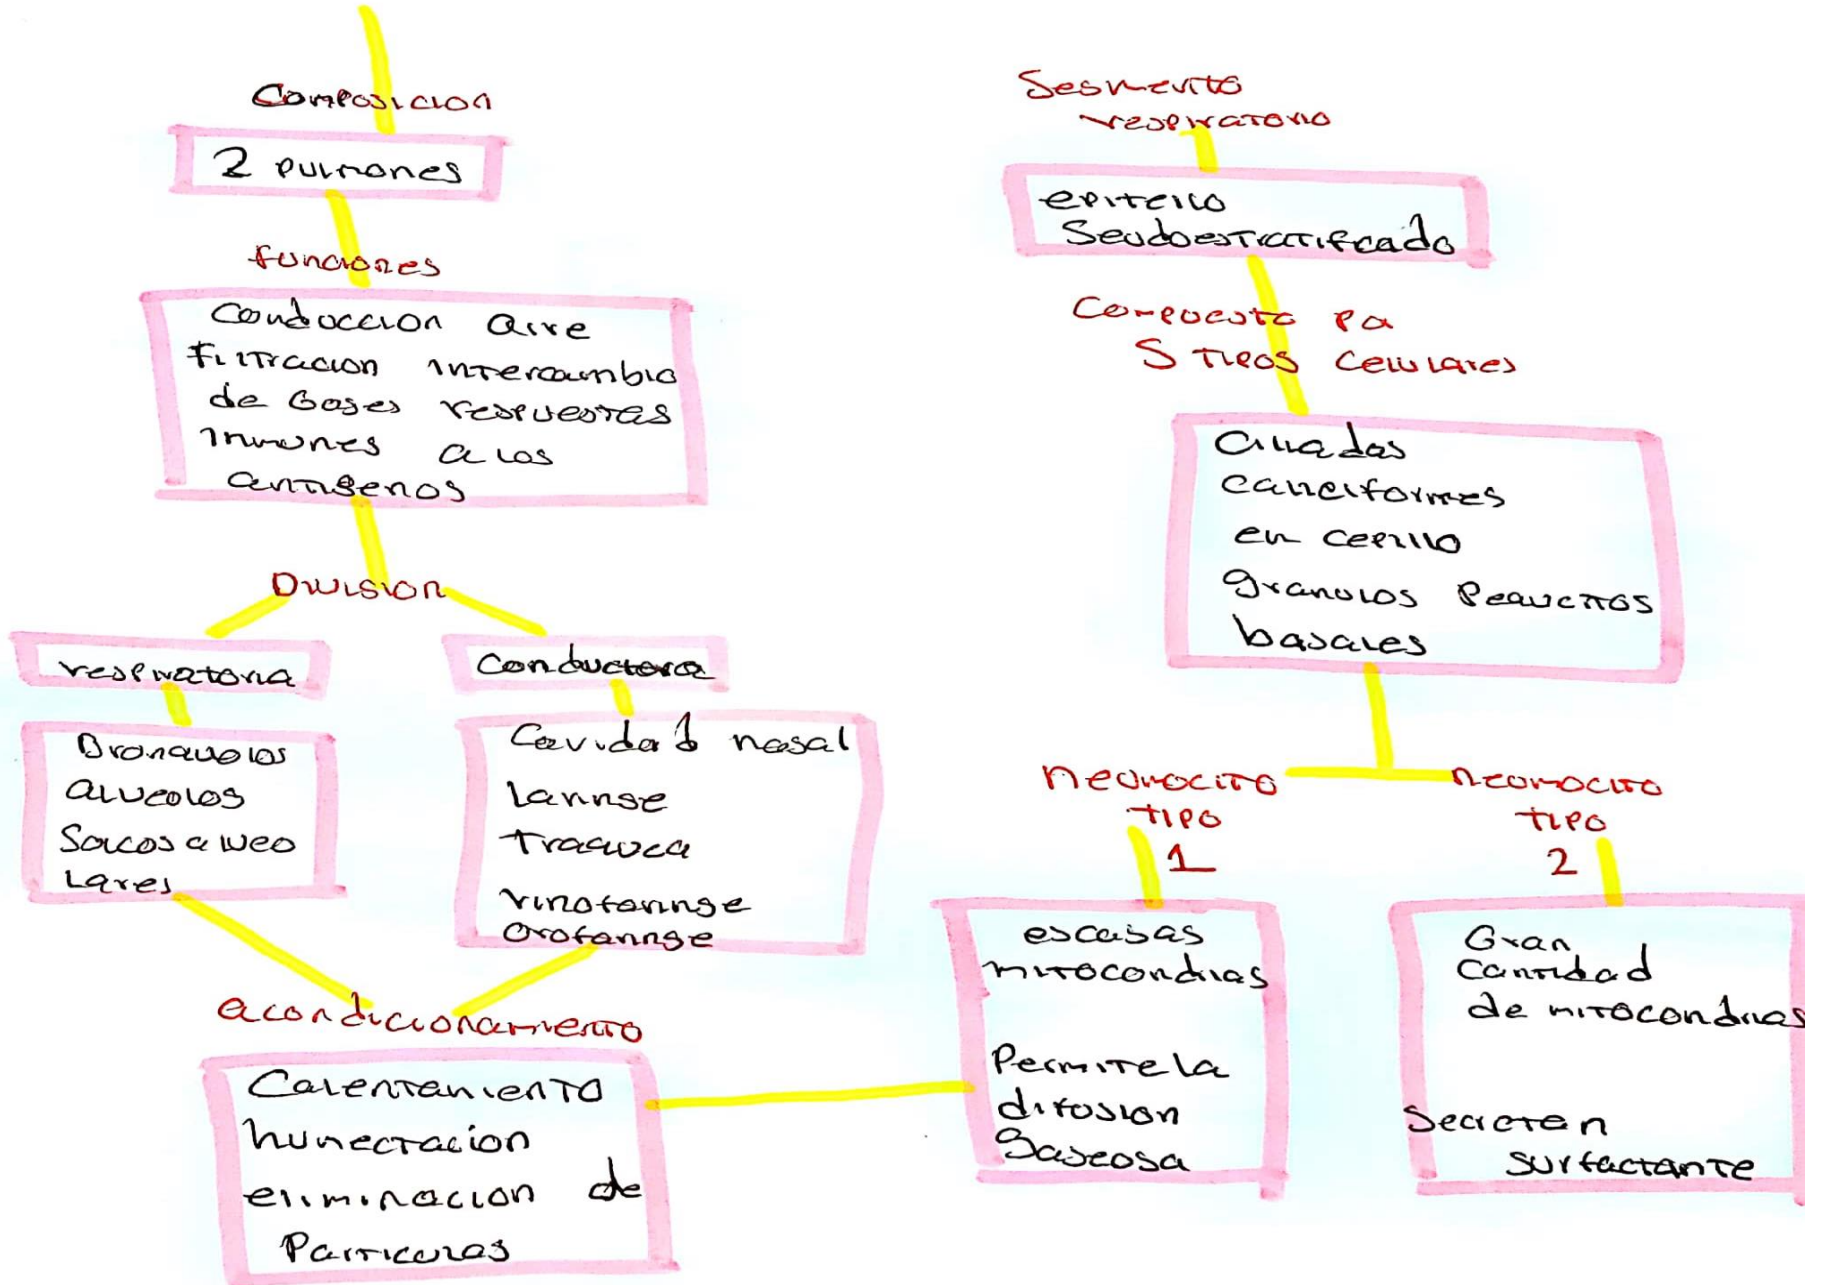 Composicion
2 pulmones
funciones
Conduccion aire
filtracion intercambio
de Gases respuestas
inmunes a los
antigenos
Division
respiratoria
Bronquiolos
alveolos
Sacos alveo
lares
Conductora
Cavidad nasal
laringe
Traquea
rinofaringe
orofaringe
acondicionamiento
Calentamiento
humectacion
eliminacion de
Particulas
Segmento
respiratorio
epitelio
Seudoestratificado
Compuesto por
5 tipos celulares
ciliadas
caliciformes
en cepillo
granulos pequeños
basales
neumocito
tipo
1
escasas
mitocondrias
Permite la
difusion
gaseosa
neumocito
tipo
2
Gran
Cantidad
de mitocondrias
Secreten
surfactante